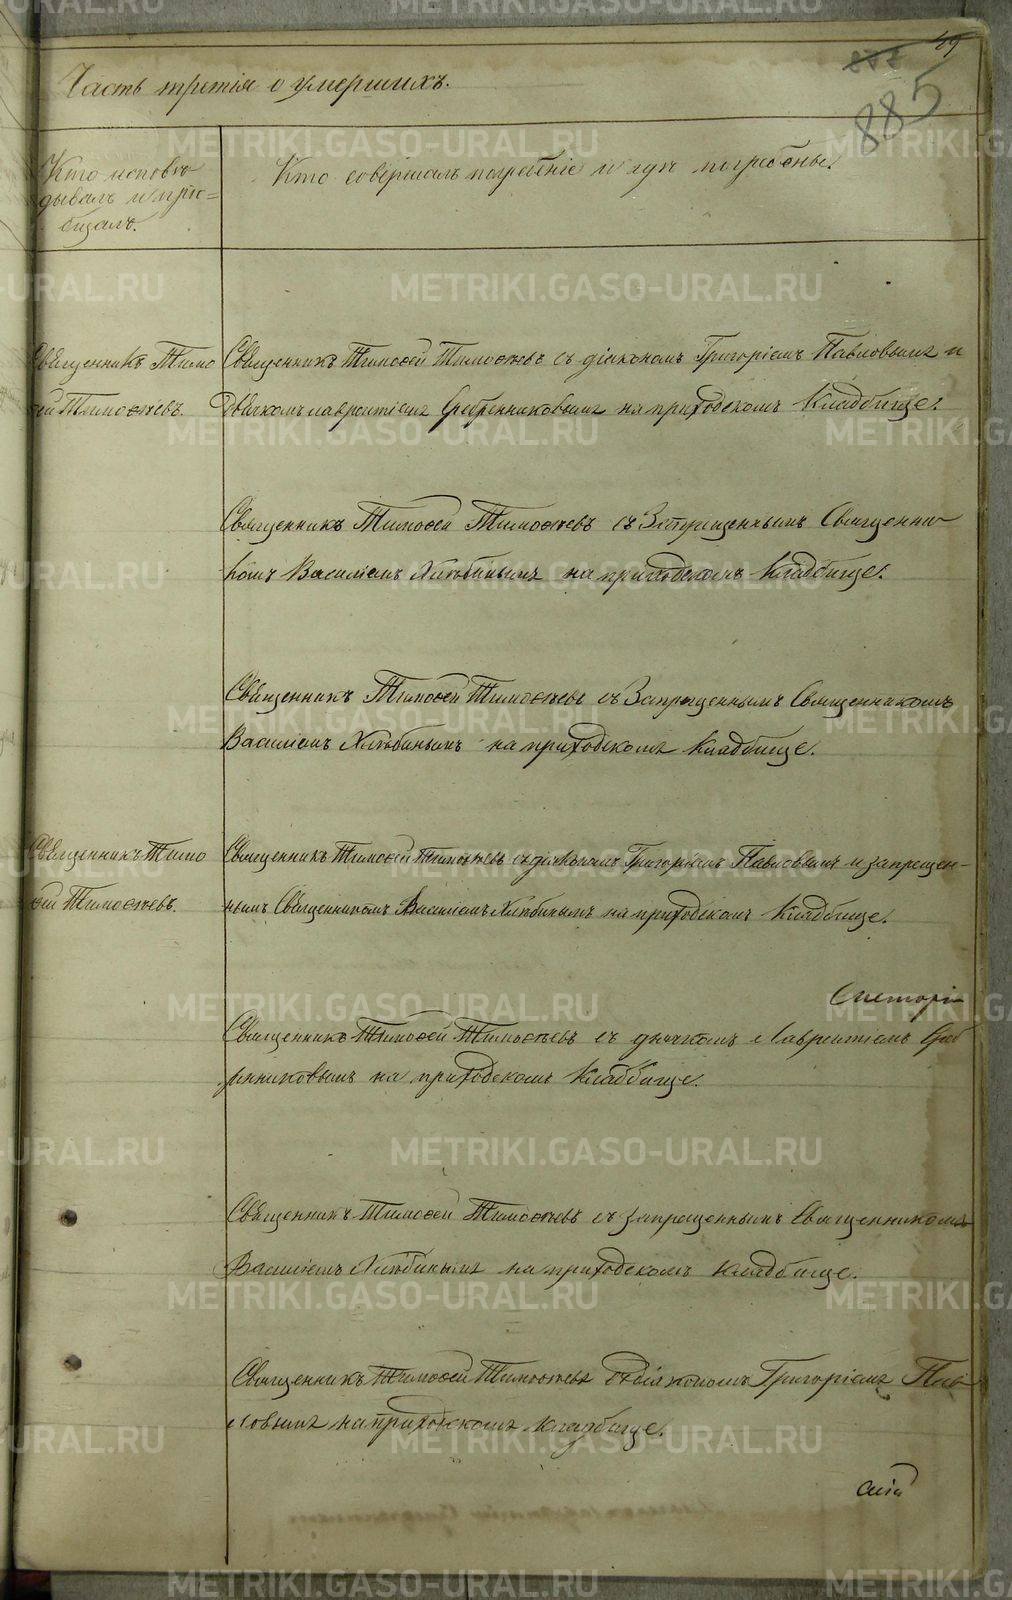 49
885
Часть третія о умершихъ.
Кто исповѣ
дывалъ и прі=
общалъ.
Кто совершалъ погребеніе и гдѣ погребены.
Священникъ Тимо
ѳей Тимоѳѣевъ.
Священникъ Тимоѳей Тимоѳѣевъ съ діакономъ Григоріемъ Павловымъ и
Дьячкомъ Лаврентіемъ Серебренниковымъ на приходскомъ Кладбище.
Священникъ Тимоѳей Тимоѳѣевъ съ Запрещеннымъ Священни
комъ Василіемъ Хлѣбинымъ на приходскомъ Кладбище.
Священникъ Тимоѳей Тимоѳѣевъ съ Запрещеннымъ Священникомъ
Василіемъ Хлѣбинымъ на приходскомъ Кладбище.
Священникъ Тимо
ѳей Тимоѳѣевъ.
Священникъ Тимоѳей Тимоѳѣевъ съ діакономъ Григоріемъ Павловымъ и запрещен-
нымъ Священникомъ Василіемъ Хлѣбинымъ на приходскомъ Кладбище.
Священникъ Тимоѳей Тимоѳѣевъ съ дьячкомъ Лаврентіемъ Среб
ренниковымъ на приходскомъ Кладбище.
Священникъ Тимоѳей Тимоѳѣевъ съ запрещеннымъ Священникомъ
Василіемъ Хлѣбинымъ на приходскомъ кладбище.
Священникъ Тимоѳей Тимоѳѣевъ съ діакономъ Григоріемъ Пав
ловымъ на приходскомъ кладбище.
METRIKI.GASO-URAL.RU